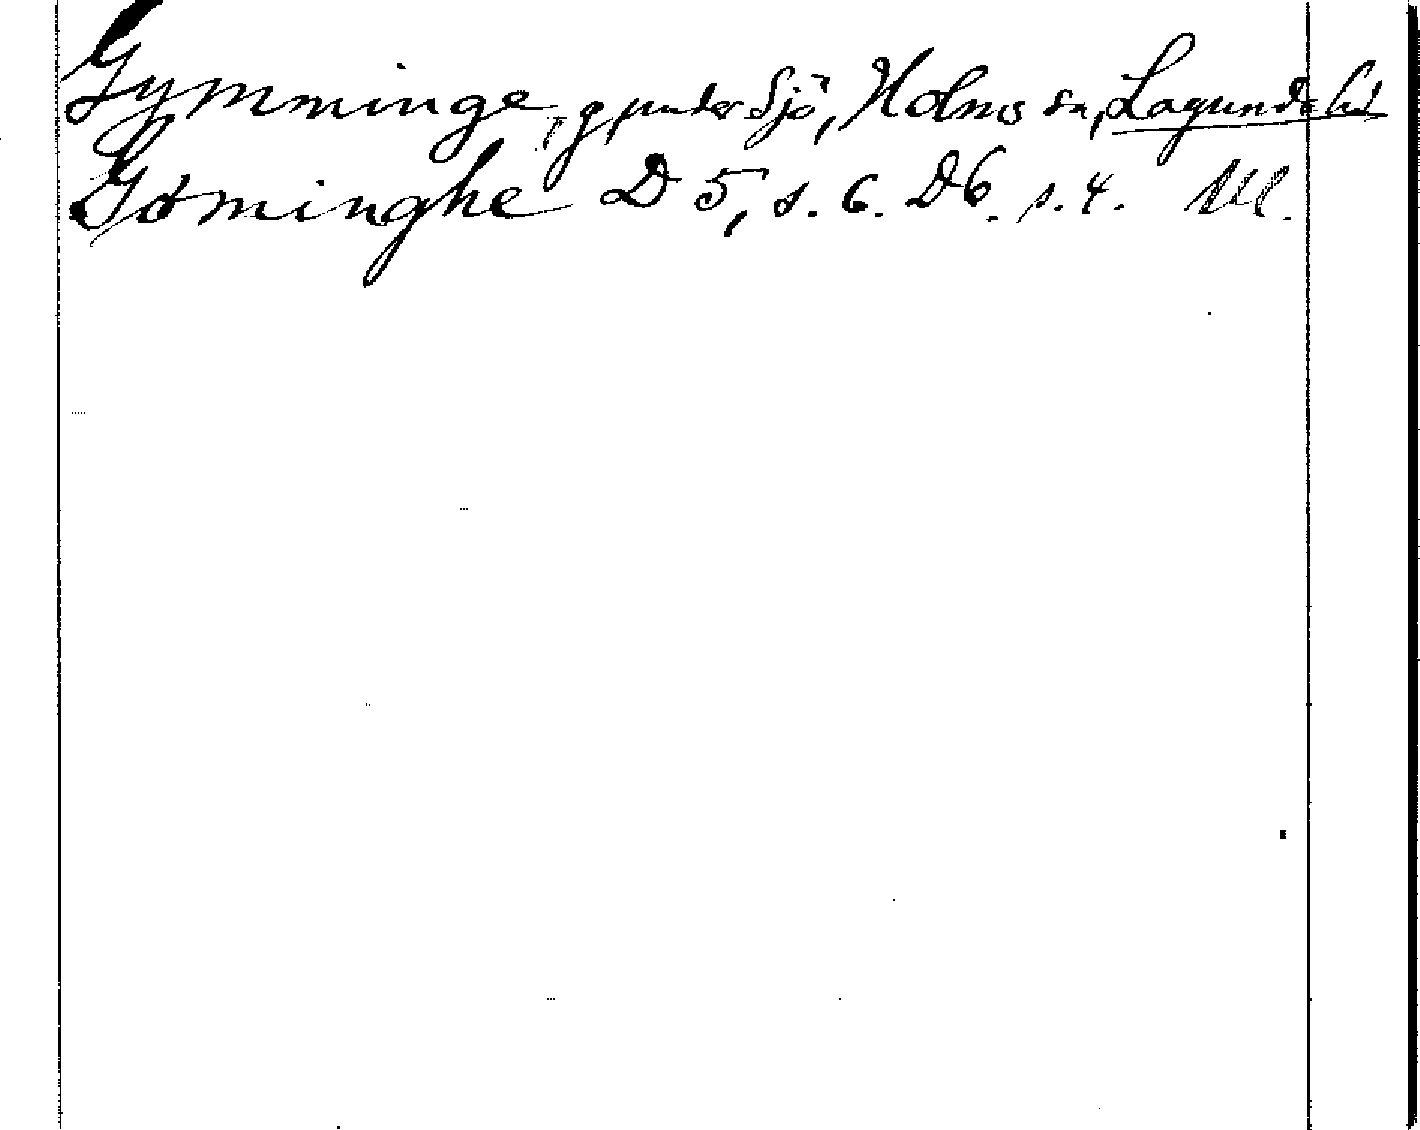 Gymminge, g, under Sjö, Holms sn, Lagunda hd
Gøminghe D 5, s. 6. D6. s. 4. Upl.